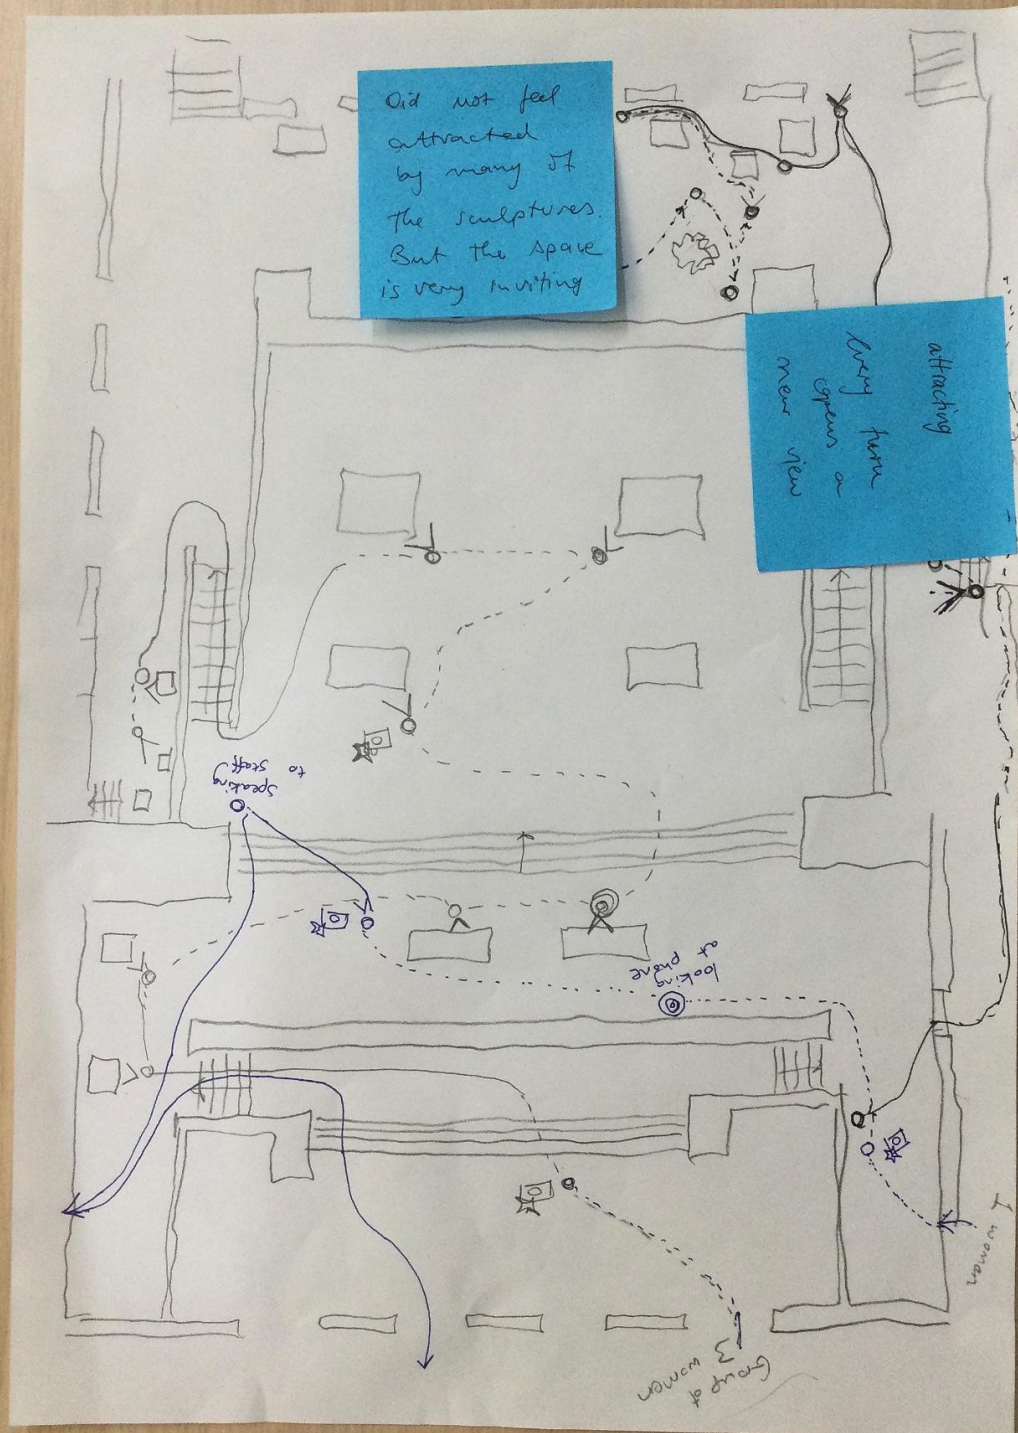 Did not feel
attracted
by many of
the sculptures.
But the space
is very inviting
attracting
Every turn
opens a
new view
speaking
to staff
looking
at phone
1 woman
Group of
3
women